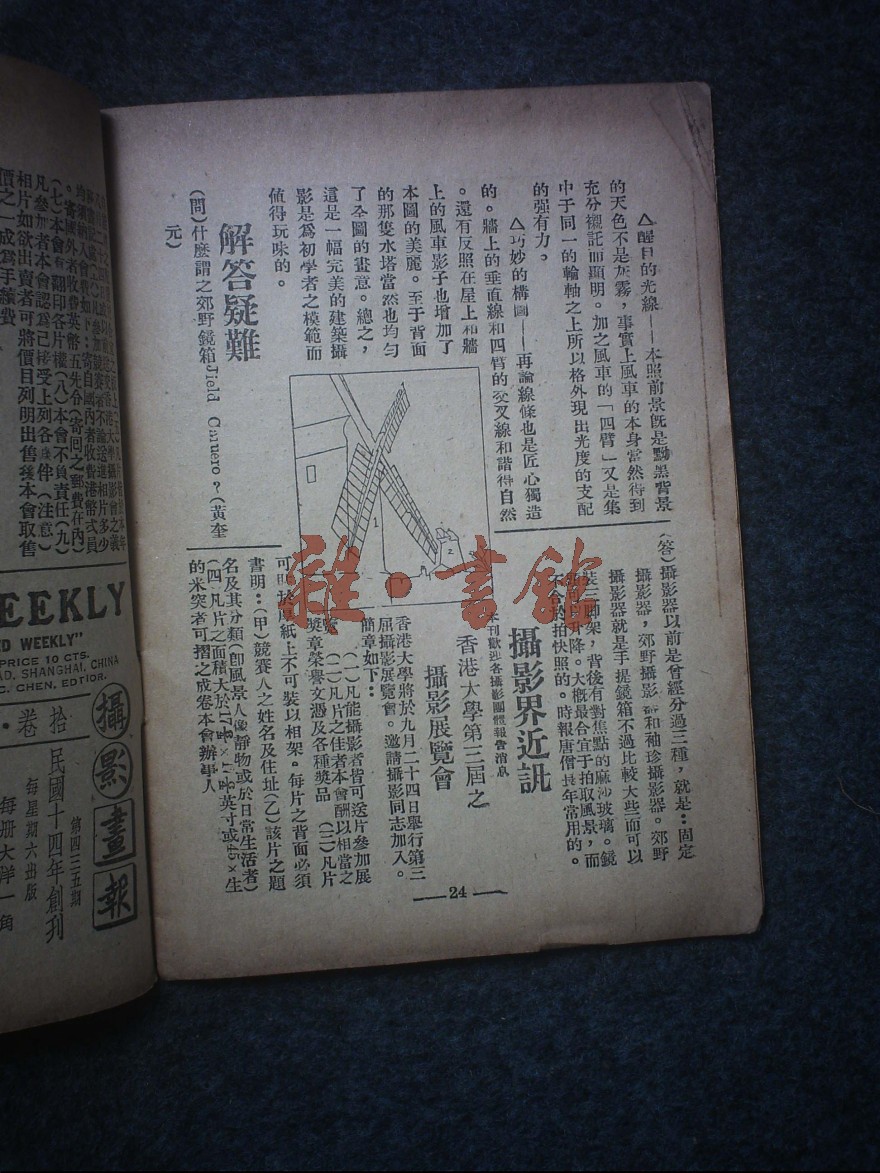 △醒目的光線——本照前景旣是黝黑背景
的天色不是灰霧，事實上風車的本身當然得到
充分襯託而顯明。加之風車的「四臂」又是集
中于同一的輪軸之上所以格外現出光度的支配
的强有力。
△巧妙的構圖——再論線條也是匠心獨造
的。牆上的垂直線和四臂的交叉線和諧得自然
。還有反照在屋上和牆
上的風車影子也增加了
本圖的美麗。至于背面
的那隻水塔當然也均勻
了全圖的畫意。總之，
這是一幅完美的建築攝
影是爲初學者之模範而
値得玩味的。
1
2
解答疑難
(問)什麽謂之郊野鏡箱Field Camero？(黃奎
元)
(答)攝影器以前是曾經分過三種，就是：固定
攝影器，郊野攝影器和袖珍攝影器。郊野
攝影器就是手提鏡箱不過比較大些而可以
裝三脚架，背後有對焦點的麻沙玻璃。鏡
升降。大槪最合宜于拍取風景，而
不合於拍快照的。時報唐僧其年常用的。
攝影界近訊
本刊歡迎各攝影團體報告消息
香港大學第三屆之
攝影展覽會
香港大學將於九月二十四日舉行第三
屆攝影展覽會。邀請攝影同志加入。
簡章如下：
(一)凡能攝影者皆可送片參加展
覽 (二)凡片之佳者本會酬以相當之
獎章榮譽文憑及各種獎品 (三)凡片
可映於厚紙上不可裝以相架。每片之背面必須
書明：(甲)競賽人之姓名及住址(乙)該片之題
名及其分類(卽風景人像靜物或於日常生活者)
(四)凡片之面積大於
英寸或45×生
的米突者可摺之成卷本會辦事人
—24—
。寄國外者收費英幣五先分(寄回之郵費在內)
(七)本會有翻印各片權(八)本會不負責任(九)
凡參加者本會認爲已接受上列各條件(注意)
相片如欲出賣者可將價目列明出售後本會取售
價之一成爲手續費
WEEKLY
WEEKLY"
PRICE 10 CTS.
SHANGHAI, CHINA
C. CHEN. EDITIOR.
攝影畫報
拾卷
民國十四年創刊
第四三五期
每星期六出版
每册大洋一角
雜·書館